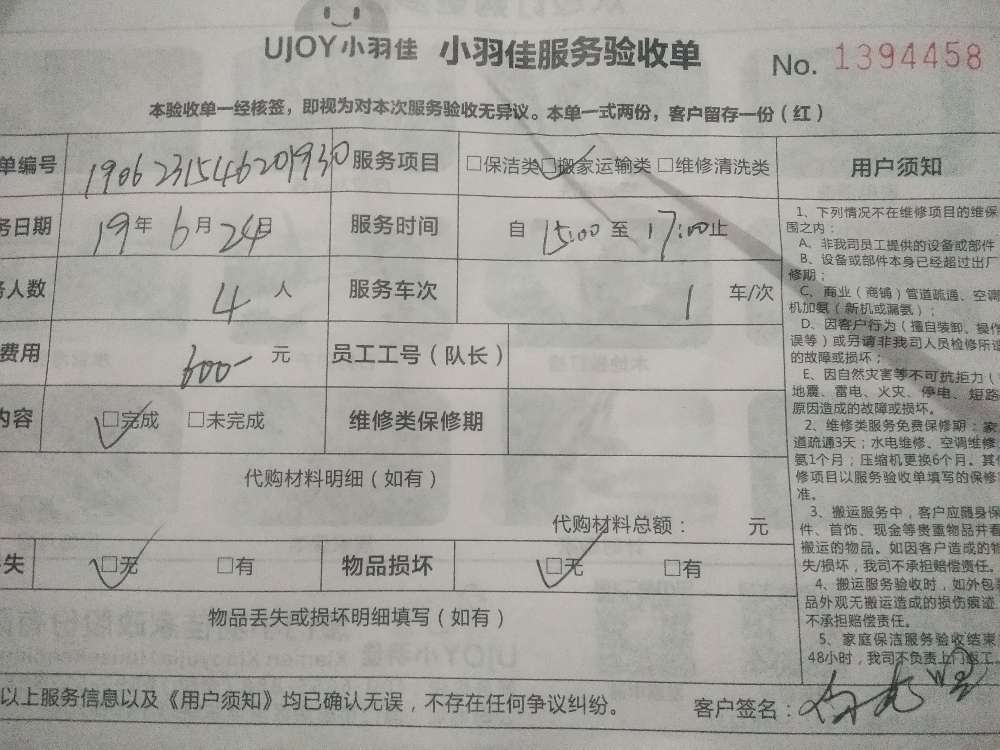 UJOY小羽佳 小羽佳服务验收单 No. 1394458
本验收单一经核签，即视为对本次服务验收无异议。本单一式两份，客户留存一份（红）
单编号 1906231546201930 服务项目 □保洁类 □搬家运输类 □维修清洗类 用户须知
务日期 19年 6月 24日 服务时间 自 15:00 至 17:00止
务人数 4 人 服务车次 1 车/次
费用 600- 元 员工工号（队长）
内容 □完成 □未完成 维修类保修期
代购材料明细（如有）
代购材料总额： 元
失 □无 □有 物品损坏 □无 □有
物品丢失或损坏明细填写（如有）
以上服务信息以及《用户须知》均已确认无误，不存在任何争议纠纷。 客户签名：
1、下列情况不在维修项目的维保
围之内：
A、非我司员工提供的设备或部件
B、设备或部件本身已经超过出厂
修期；
C、商业（商铺）管道疏通、空调
机加氨（新机或漏氨）；
D、因客户行为（擅自装卸、操作
误等）或另请非我司人员检修所
的故障或损坏；
E、因自然灾害等不可抗拒力（
地震、雷电、火灾、停电、短路
原因造成的故障或损坏。
2、维修类服务免费保修期：家
道疏通3天；水电维修、空调维修
氨1个月；压缩机更换6个月。其
修项目以服务验收单填写的保修
准。
3、搬运服务中，客户应随身保
件、首饰、现金等贵重物品并看
搬运的物品。如因客户造成的物
失/损坏，我司不承担赔偿责任。
4、搬运服务验收时，如外包装
品外观无搬运造成的损伤痕迹
不承担赔偿责任。
5、家庭保洁服务验收结束
48小时，我司不负责上门返工。